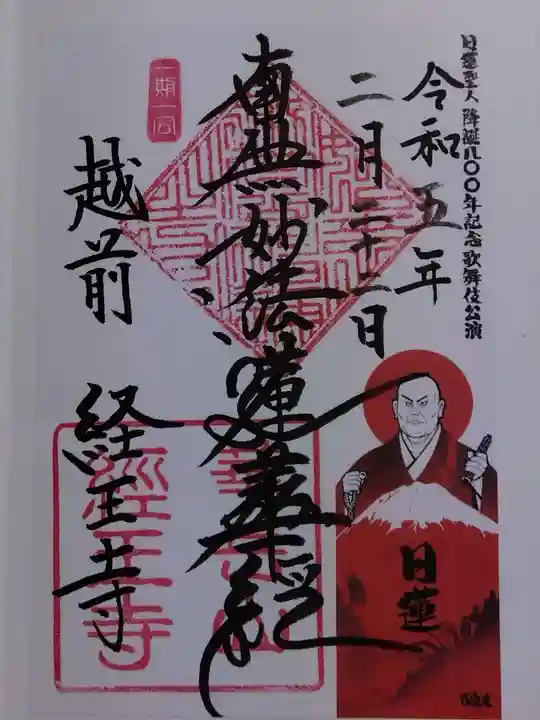 日蓮聖人降誕八〇〇年記念歌舞伎公演
令和五年
二月二十二日
南無妙法蓮華経
越前
経王寺
經王寺
日蓮